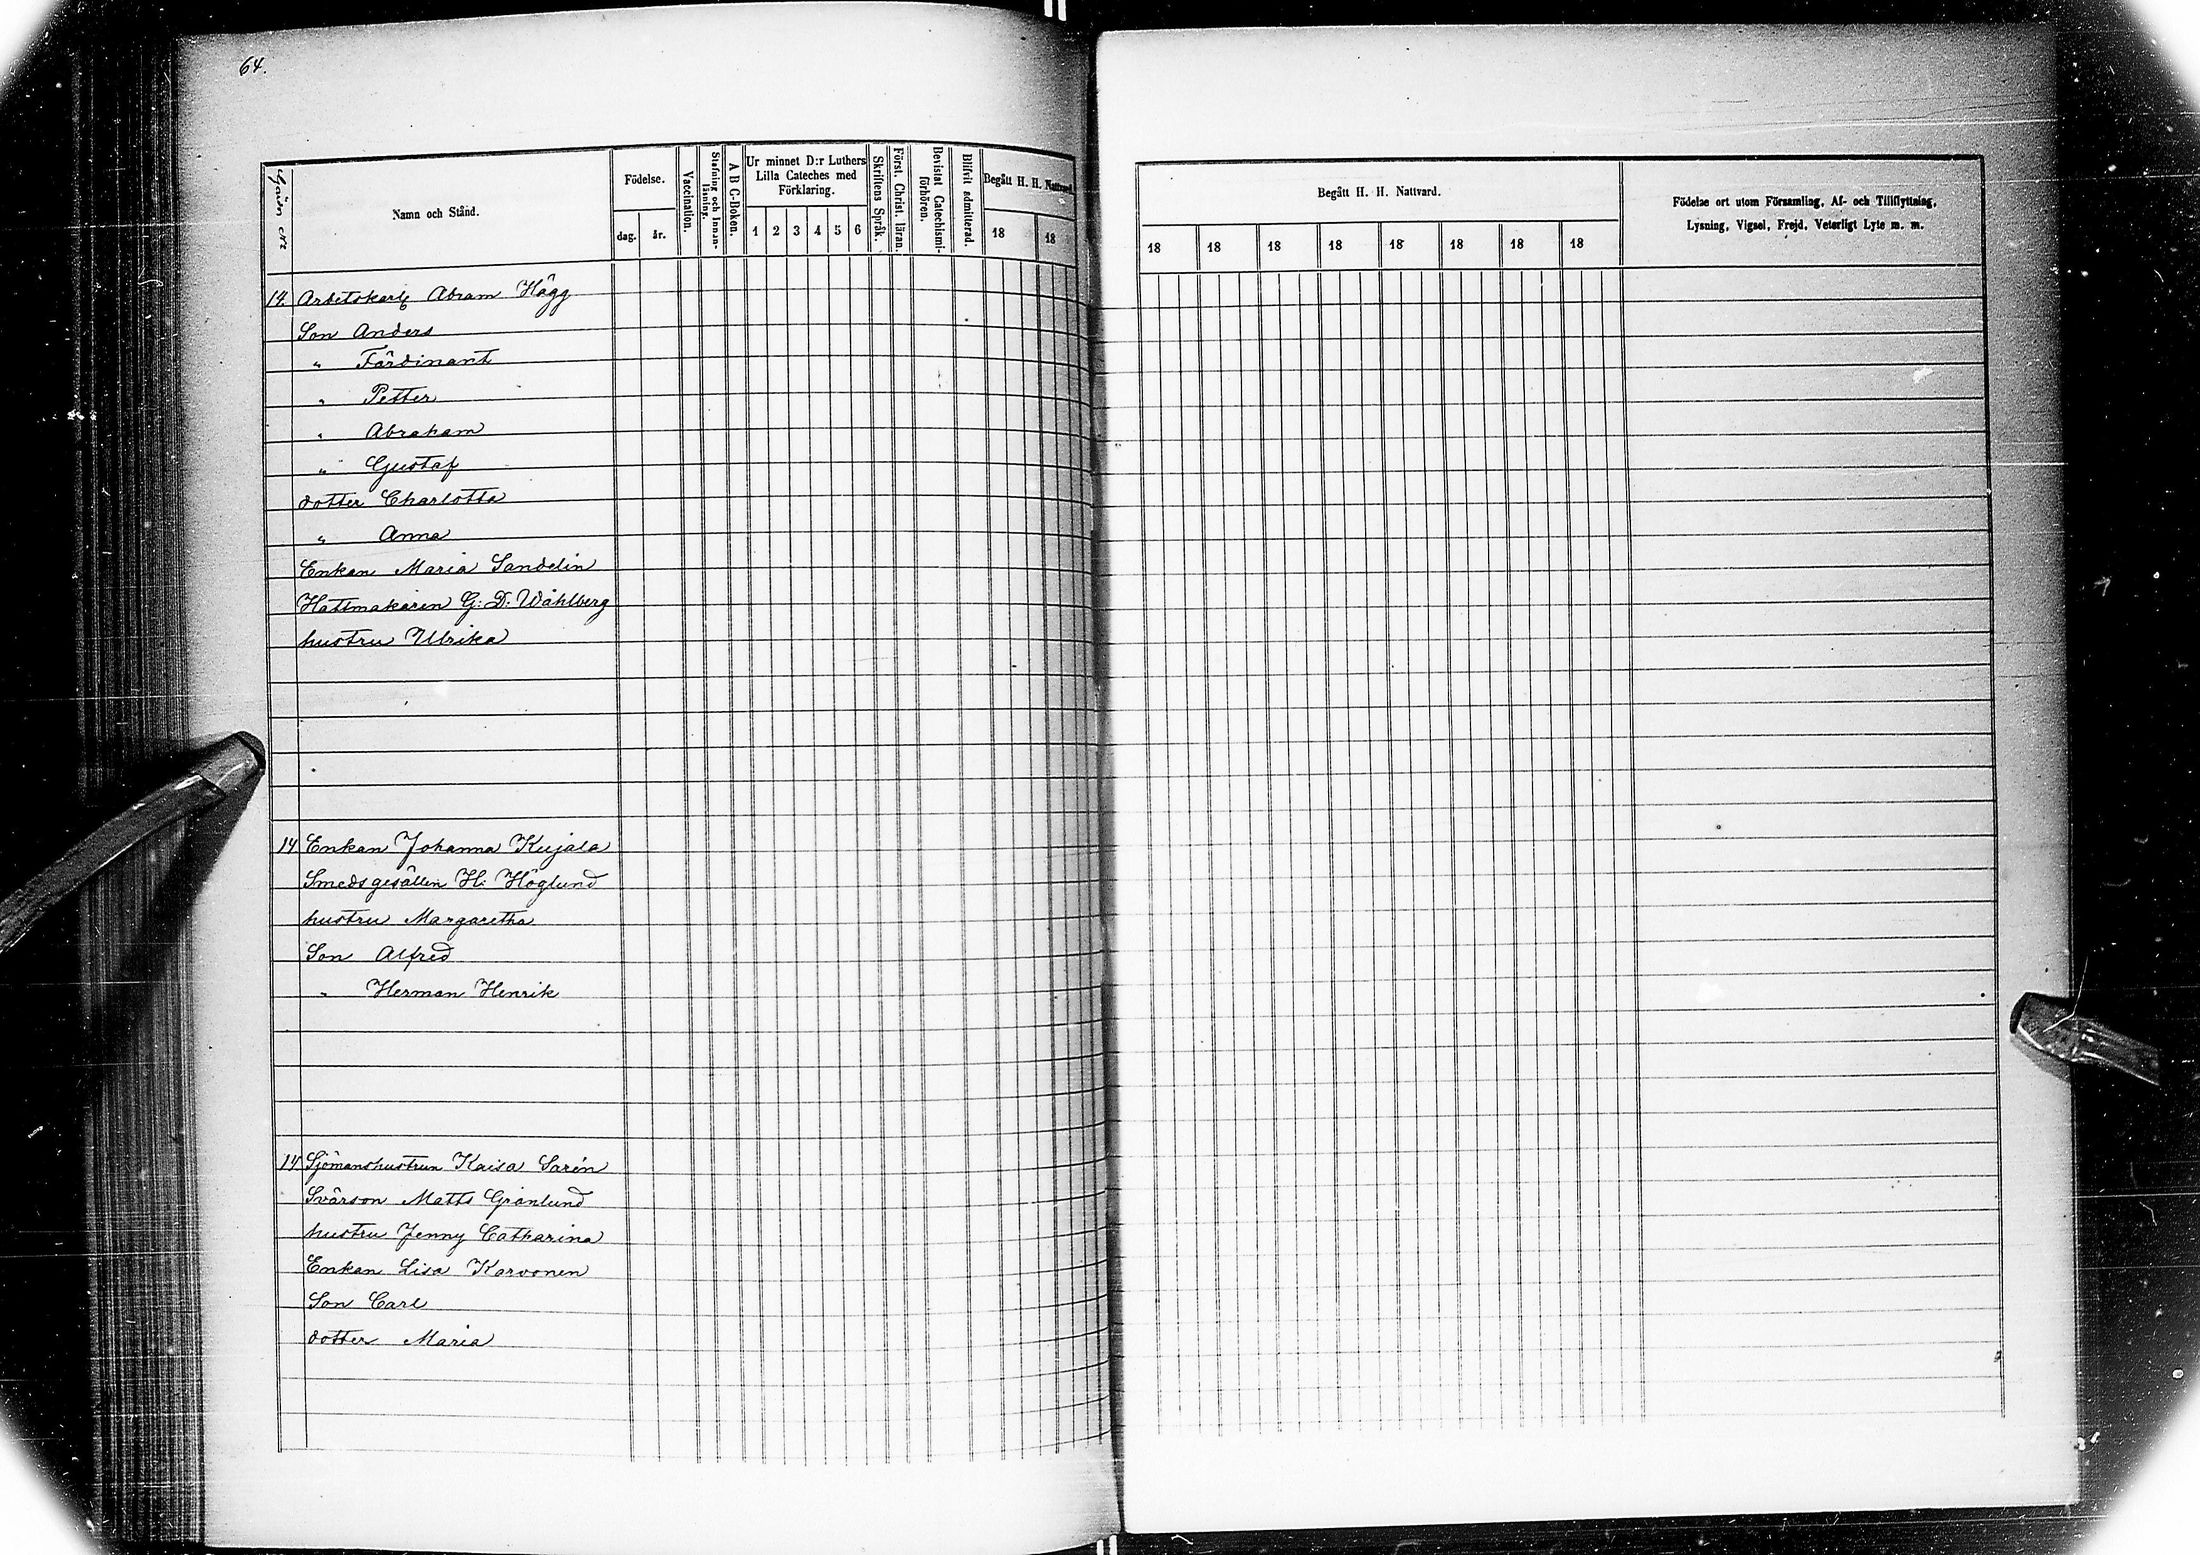 64.
Gården №
Namn och Stånd.
Födelse.
dag.
år.
Vaccination.
Stafning och Innan-
läsning.
A B C-Boken.
Ur minnet D:r Luthers
Lilla Cateches med
Förklaring.
1 2 3 4 5 6
Skriftens Språk.
Först. Christ. läran.
Bevistat Catechismi-
förhören.
Blifvit admitterad.
Begått H. H. Nattvard.
18 18
Begått H. H. Nattvard.
18 18 18 18 18 18 18 18
Födelse ort utom Församling, Af- och Tillflyttning,
Lysning, Vigsel, Frejd, Veterligt Lyte m. m.
14 Arbetskarls Abram Hägg
Son Anders
" Färdinant
" Petter
" Abraham
" Gustaf
dotter Charlotta
" Anna
Enkan Maria Sandelin
Hattmakaren G: D: Wåhlberg
hustru Ulrika
14 Enkan Johanna Kujala
Smedsgesällen H: Höglund
hustru Margaretha
Son Alfred
" Herman Henrik
14 Sjömanshustrun Kaisa Sarén
Svärson Matts Grönlund
hustru Jenny Catharina
Enkan Lisa Karvonen
Son Carl
dotter Maria